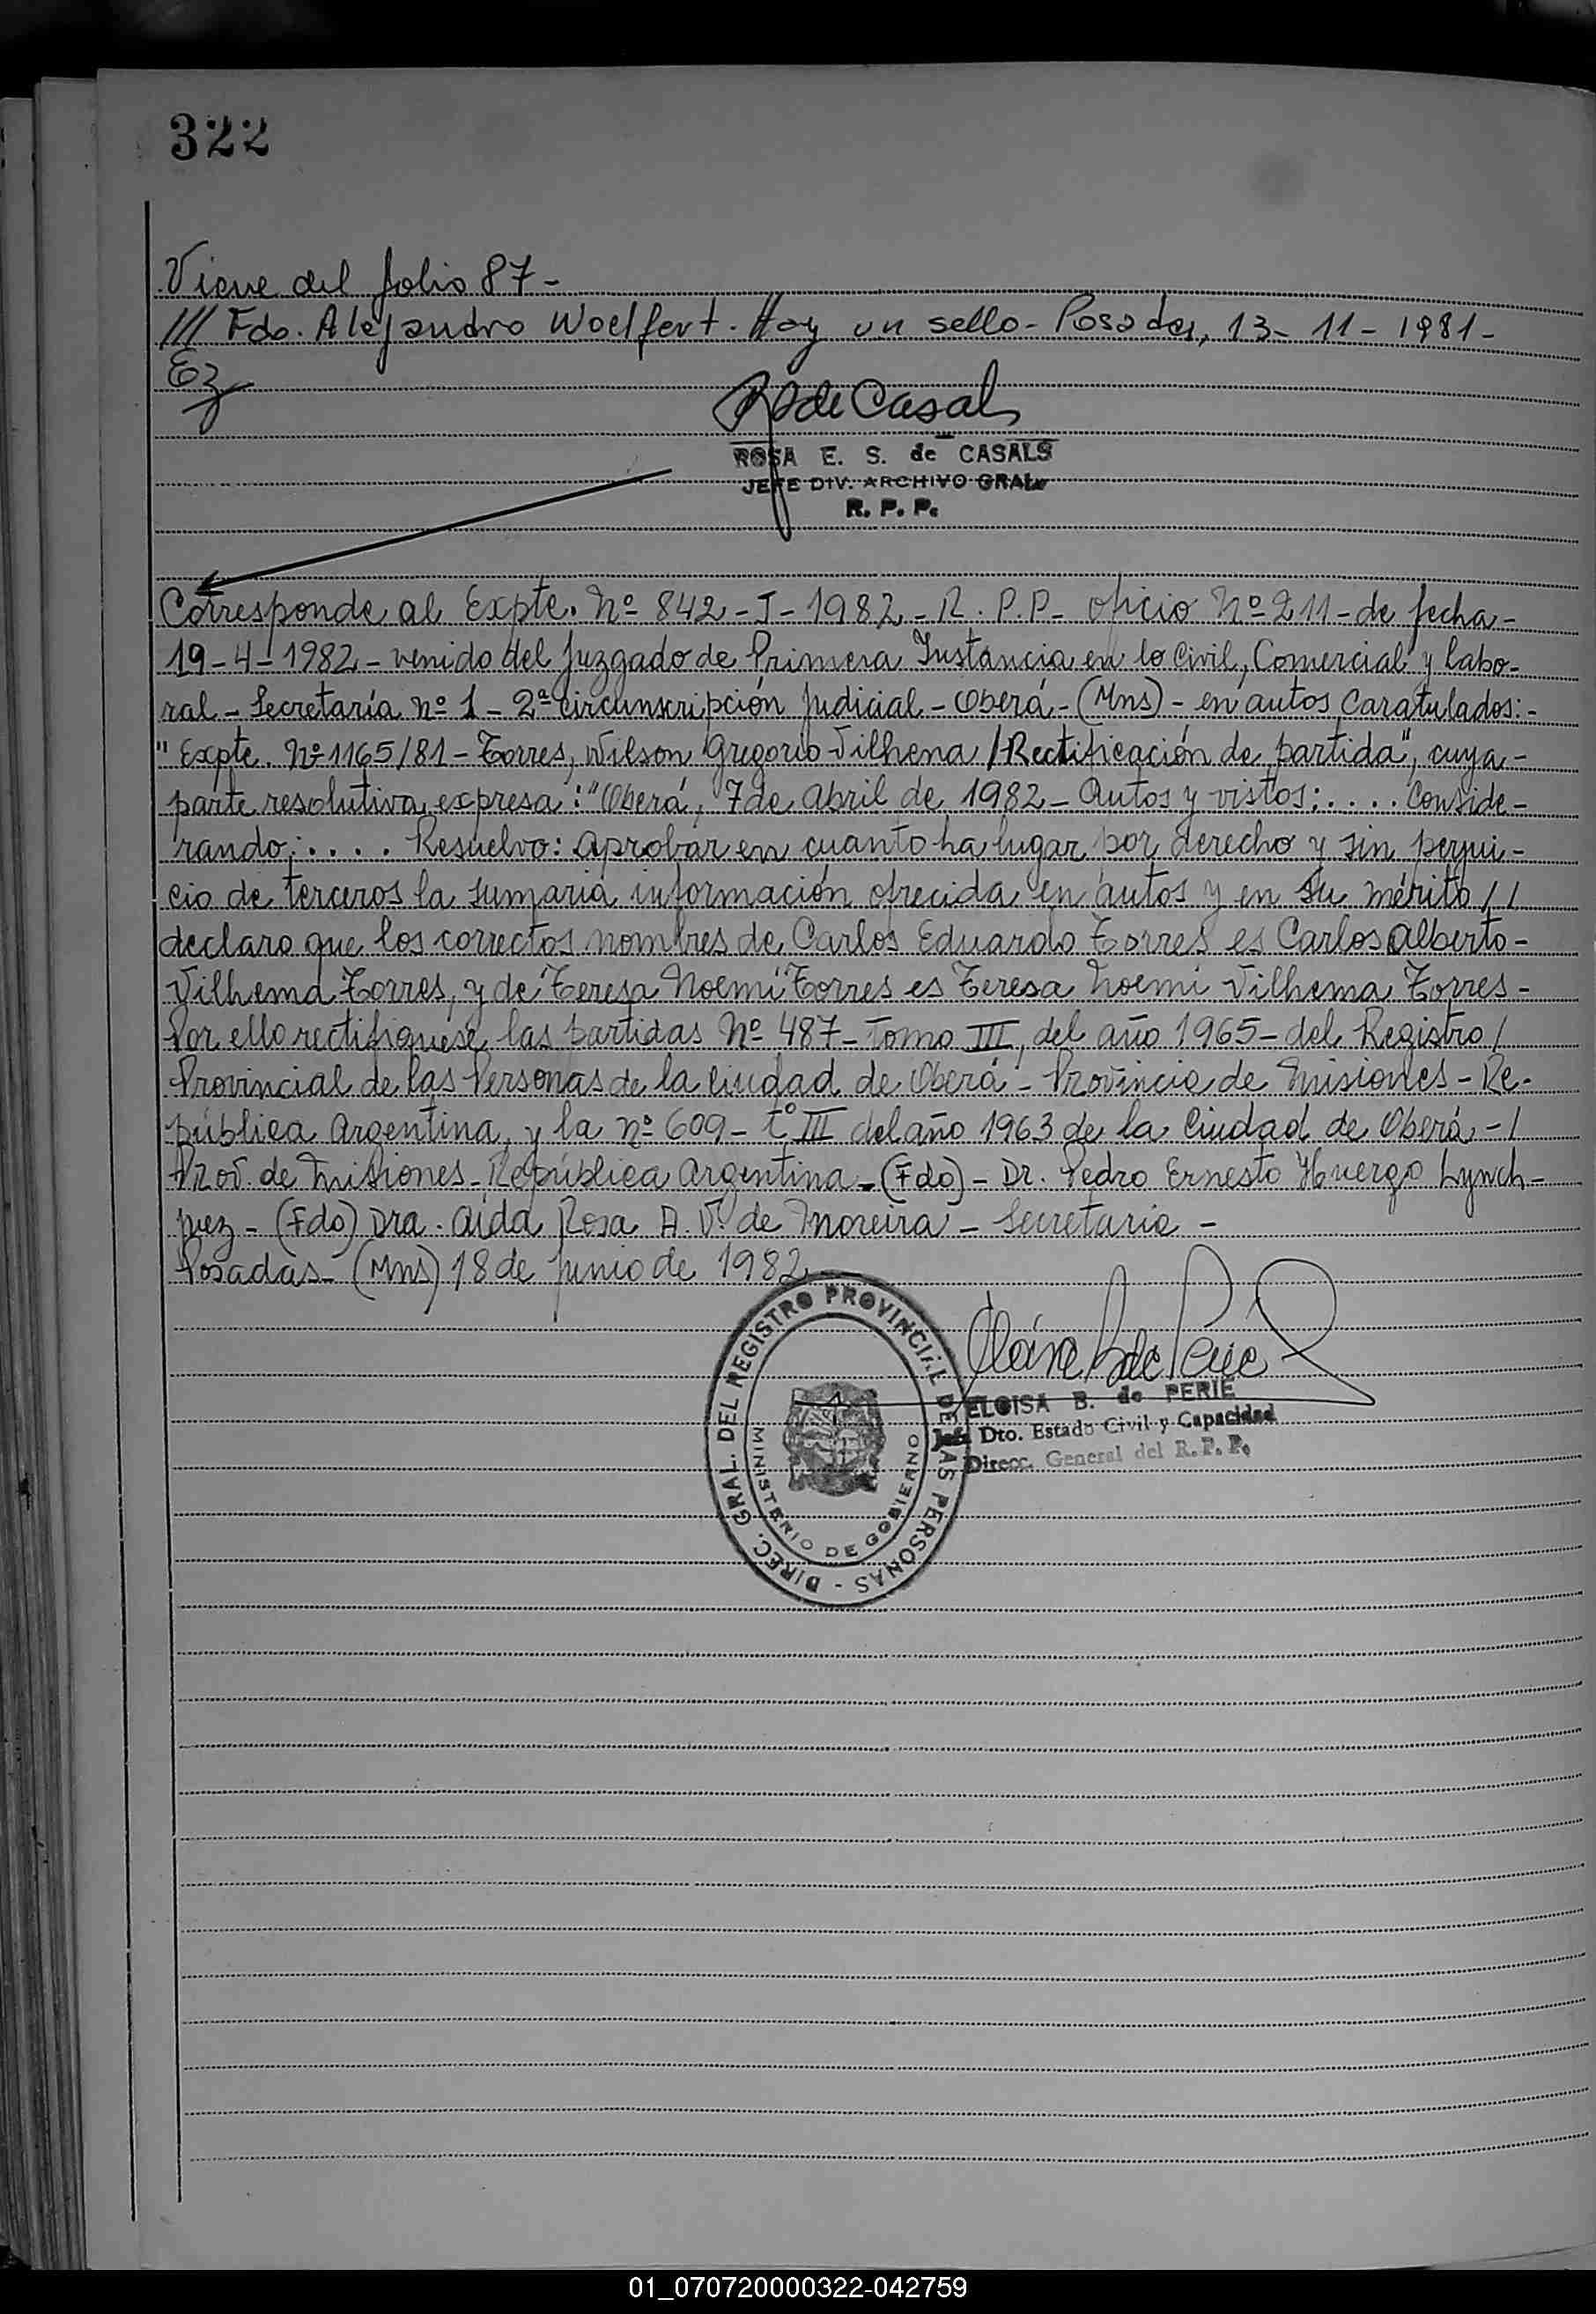 322
Viene del folio 87-
/// Fdo. Alejandro Woelfert. Hay un sello- Posadas, 13- 11- 1981-
Ez
R de Casals
ROSA E. S. de CASALS
JEFE DIV. ARCHIVO GRAL.
R. P. P.
Corresponde al Expte. Nº 842-J-1982- R. P.P- oficio Nº 211-de fecha-
19-4-1982- venido del Juzgado de Primera Instancia en lo Civil, Comercial y Labo-
ral - Secretaría nº 1 - 2ª circunscripción Judicial - Oberá - (Mns) - en autos Caratulados:-
"Expte. Nº 1165/81 - Torres, Wilson Gregorio Vilhena / Rectificación de partida", cuya-
parte resolutiva expresa: "Oberá, 7 de Abril de 1982- Autos y vistos:.... Conside-
rando:.... Resuelvo: Aprobar en cuanto ha lugar por derecho y sin perjui-
cio de terceros la sumaria información ofrecida en autos y en su mérito //
declaro que los correctos nombres de Carlos Eduardo Torres es Carlos Alberto-
Vilhema Torres, y de Teresa Noemí Torres es Teresa Noemí Vilhema Torres-
Por ello rectifiquese las partidas Nº 487- Tomo III, del año 1965- del Registro /
Provincial de las Personas de la Ciudad de Oberá - Provincia de Misiones- Re-
pública Argentina, y la nº 609- tº III del año 1963 de la Ciudad de Oberá - /
Prov. de Misiones- República Argentina.-(Fdo)- Dr. Pedro Ernesto Huergo Lynch-
juez - (Fdo) Dra. Aída Rosa A. V. de Moreira - Secretaria -
Posadas- (Mns) 18 de junio de 1982
DIREC. GRAL. DEL REGISTRO PROVINCIAL DE LAS PERSONAS -
MINISTERIO DE GOBIERNO
ELOISA B. de PERIE
Jefe Dto. Estado Civil y Capacidad
Direcc. General del R. P. P.
01_070720000322-042759